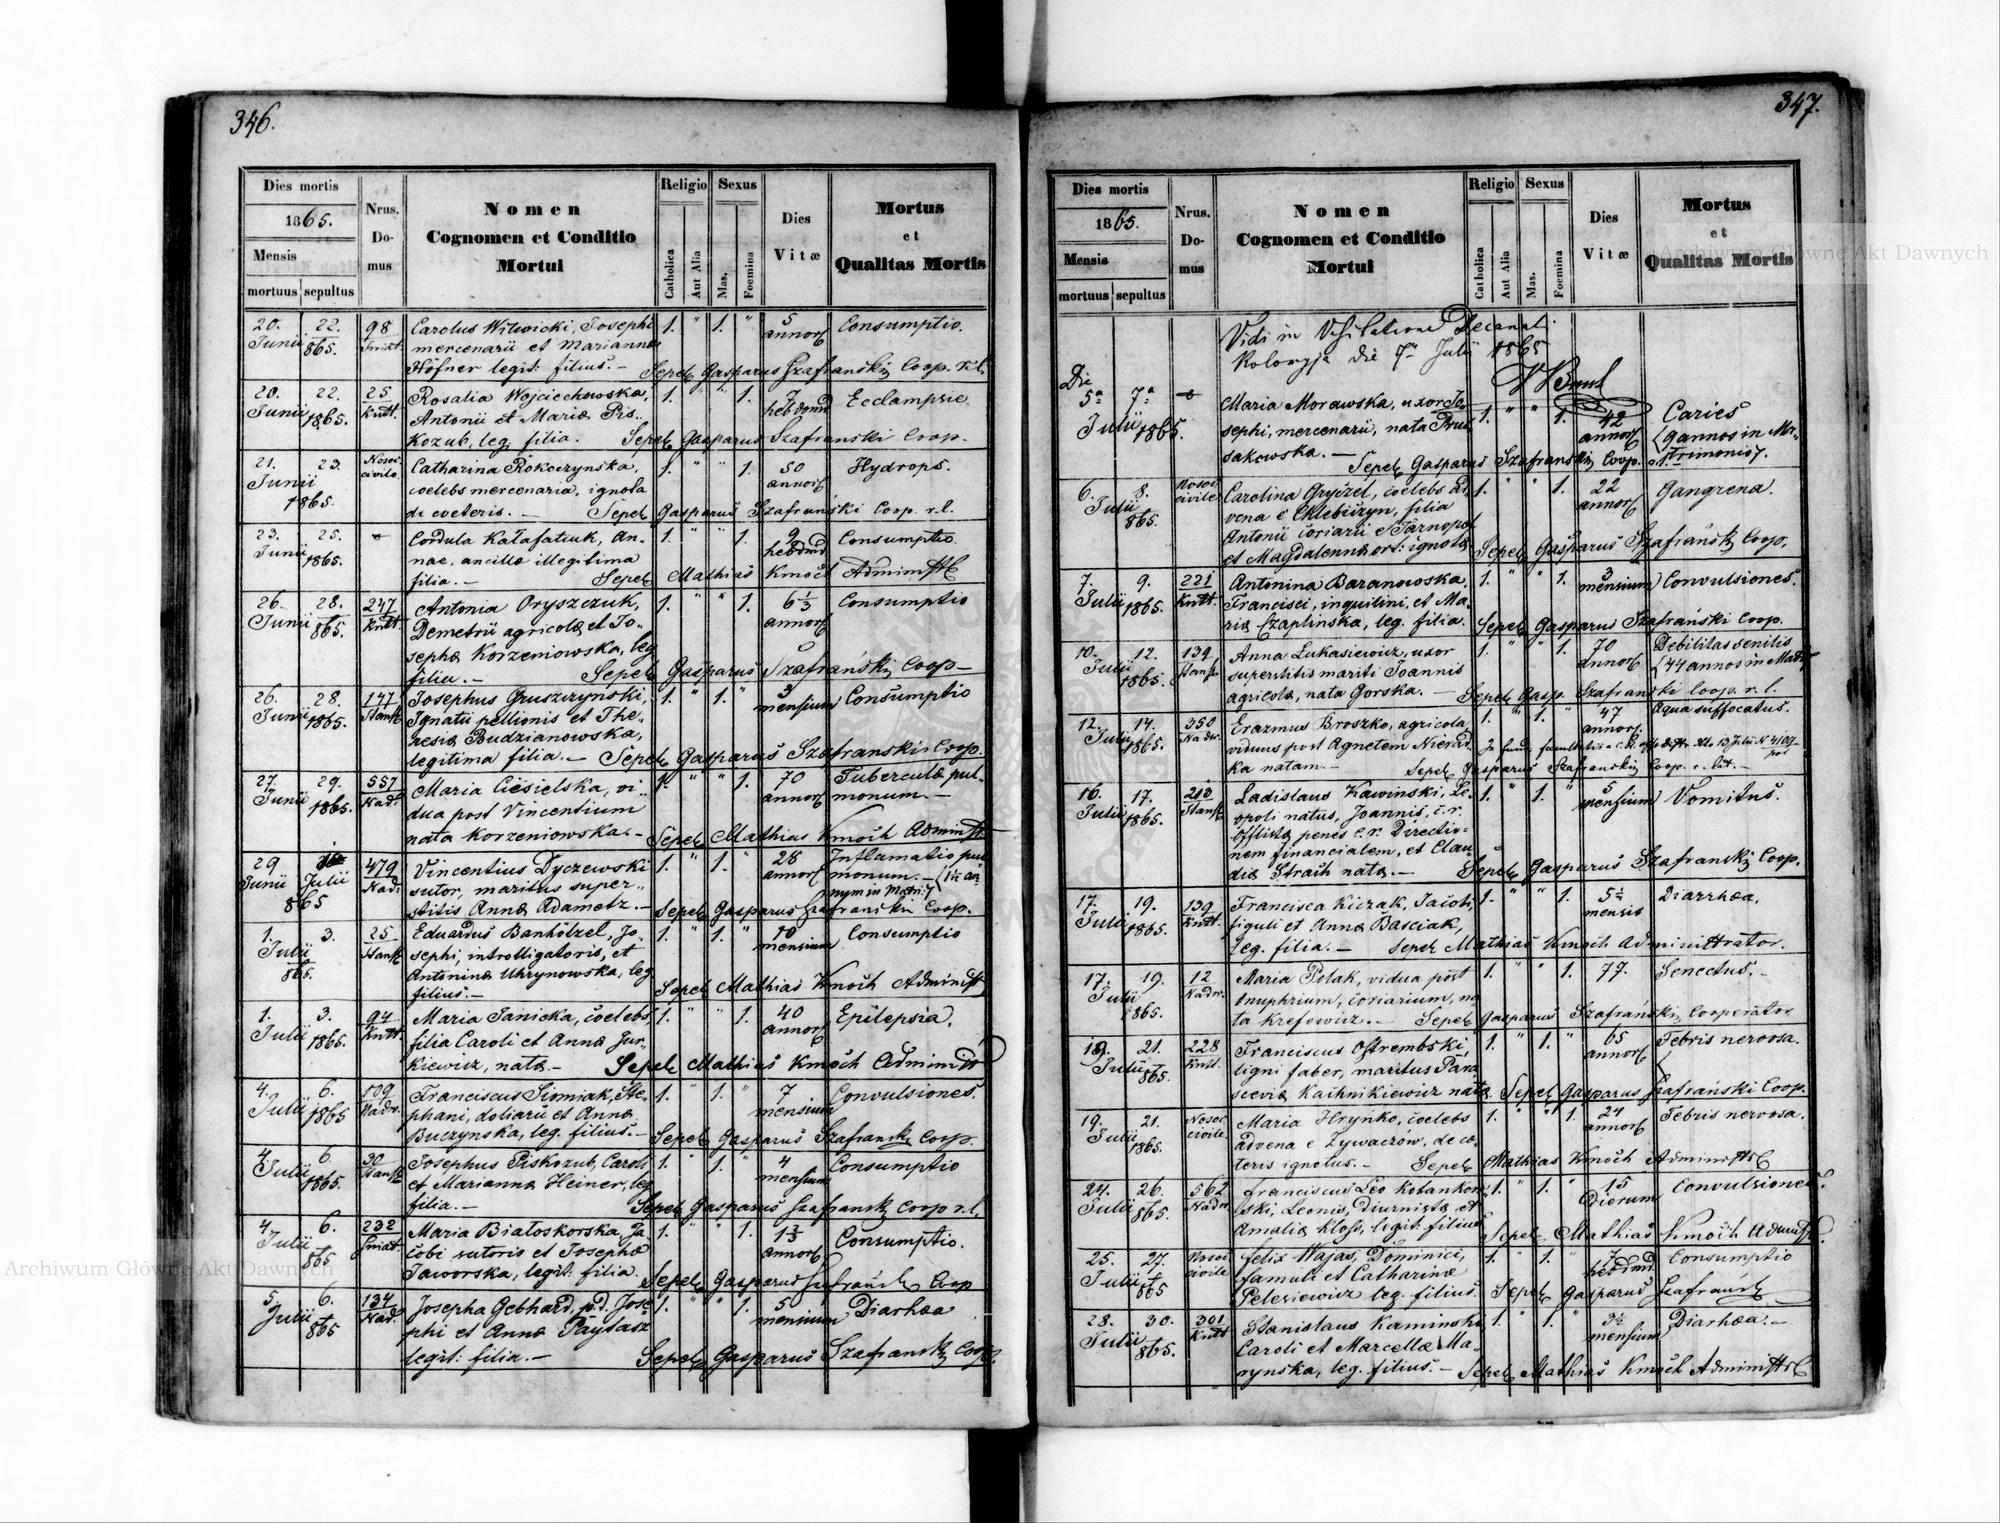 346.
Dies mortis
1865.
Mensis
mortuus sepultus
Nrus.
Do-
mus
Nomen
Cognomen et Conditio
Mortui
Religio
Catholica
Aut Alia
Sexus
Mas.
Foemina
Dies
Vitæ
Mortus
et
Qualitas Mortis
20. 22. 98 Carolus Witwicki, Josephi 1. " 1. " 5 Consumptio.
Junii 865. mercenarii et Marianna
Höfner legit: filius. Sepel: Gasparus Szafrański Coop. r.l.
20. 22. 25 Rosalia Wojciechowska, 1. " " 1. 7 Ecclampsie
Junii 1865. Kntt. Antonii et Maria Pis- hebdmd
kozub, leg. filia. Sepel: Gasparus Szafranski Coop.
21. 23. Nosoc. Catharina Rokoczynska, 1. " " 1. 50 Hydrops.
Junii civile coelebs mercenaria, ignota
1865. de coeteris. Sepel: Gasparus Szafrański Coop. r.l.
23. 25. Cordula Kałafatiuk, An- 1. " " 1. 9 Consumptio
Junii 1865. nae, ancilla illegitima hebdmd
filia. Sepel: Mathias Kmoch
26. 28. 247 Antonia Oryszczuk, 1. " " 1. 6 1/3 Consumptio
Junii 865. Kntt. Demetrii agricola et Jo-
sepha Korzeniowska, leg.
filia. Sepel: Gasparus Szafrański Coop
26. 28. 147 Josephus Gruszczynski, 1. " 1. " 3 Consumptio
Junii 1865. Ignatii pellionis et The- mensium
resia Budzianowska,
legitima filia. Sepel: Gasparus Szafranski Coop.
27. 29. 557 Maria Ciesielska, vi- 1. " " 1. 70 Tuberculæ pul-
Junii 1865. Nad. dua post Vincentium monum.
nata Korzeniowska. Sepel: Mathias Kmoch
29 479 Vincentius Dyczewski 1. " 1. " 28 Inflamatio pul-
Junii Julii Nad. sutor, maritus super- monum.
865 stitis Anna Adametz. Sepel: Gasparus Szafranski Coop.
1. 3. 25 Eduardus Banhölzel, Jo- 1. " 1. " 10 Consumptio
Julii sephi, introlligatoris, et mensium
865. Antonina Uhrynowska, leg.
filius. Sepel: Mathias Kmoch
1. 3. 94 Maria Janicka, coelebs, 1. " " 1. 40 Epilepsia.
Julii 1865. Kntt. filia Caroli et Anna Jur-
kiewicz, nata. Sepel: Mathias Kmoch
4. 6. 109 Franciscus Siomiak, Ste- 1. " 1. " 7 Convulsiones.
Julii 1865 Nadw. phani, doliarii et Anna mensium
Buczynska, leg. filius. Sepel: Gasparus Szafranski Coop.
4 6. 30 Josephus Piskozub, Caroli 1. " 1. " 4 Consumptio
Julii 1865. et Marianna Heiner, leg. mensium
filia. Sepel: Gasparus Szafranski Coop r.l.
4 6. 232 Maria Białoskorska, Ja- 1. " " 1. Consumptio.
Julii 865 cobi sutoris et Josepha
Jaworska, legit: filia. Sepel: Gasparus Szafrański Coop
5. 6. 134 Josepha Gebhard, p.d. Jose- 1. " " 1. 5 Diarhœa
Julii 865 Nad. phi et Anna mensium
legit: filia. Sepel: Gasparus Szafrański Coop.
347.
Dies mortis
1865.
Mensis
mortuus sepultus
Nrus.
Do-
mus
Nomen
Cognomen et Conditio
Mortui
Religio
Catholica
Aut Alia
Sexus
Mas.
Foemina
Dies
Vitæ
Mortus
et
Qualitas Mortis
Vidi in Visitatione Decanali
die 7a Julii 1865
Die
5a 7a Maria Morawska, uxor Jo- 1. " " 1. 42 Caries
Julii 1865. sephi, mercenarii, nata Pru- (9 annos in Ma-
sakowska. Sepel: Gasparus Szafranski Coop. r.l. trimonio).
6. 8. Nosoc. Carolina Gryczel, coelebs 1. " " 1. 22 Gangrena.
Julii 865. civile filia
Antonii coriarii e Tarnopol
et Magdalenna ignota Sepel: Gasparus Szafrański Coop.
7. 9. 221 Antonina Baranowska, 1. " " 1. 3 Convulsiones.
Julii 1865. Kntt. Francisci, inquilini, et Ma- mensium
ria Czaplinska, leg. filia. Sepel: Gasparus Szafrański Coop.
10. 12. 139 Anna Lukasiewicz, uxor 1. " " 1. 70 Debilitas senilis
Julii 1865. superstitis mariti Joannis (44 annos in
agricola, nata Gorska. Sepel: Gasp. Szafranski Coop. r.l.
12. 14. 350 Erazmus Broszko, agricola, 1. " 1. " 47 Aqua suffocatus.
Julii 1865. Nadw. viduus post Agnetem Nierad-
ka natam. Sepel: Gasparus Szafranski Coop. r. lat.
16. 17. 213 Ladislaus Kawinski, Le- 1. " 1. " 5 Vomitus.
Julii 1865. opoli natus, Joannis, c.r. mensium
penes c.r. Directio-
nem financialem, et Clau-
dia Straih nata. Sepel: Gasparus Szafranski Coop.
17. 19. 139 Francisca Kiczak, Jacobi, 1. " " 1. Diarrhœa.
Julii 1865. Kntt. figuli et Anna Basciak, mensis
leg. filia. Sepel: Mathias Kmoch Administrator.
17. 19. 12 Maria Pelak, vidua post 1. " " 1. 77. Senectus.
Julii 1865. Nadw. Onuphrium, coriarium, na-
ta Krefowicz. Sepel: Gasparus Szafrański, Cooperator
19. 21. 228 Franciscus Ostrembski, 1. " 1. " 65 Febris nervosa.
Julii 865. Kntt. ligni faber, maritus Para-
scevia Kachnikiewicz nata Sepel: Gasparus Szafrański Coop.
19. 21. Nosoc. Maria Hrynko, coelebs 1. " " 1. 24 Febris nervosa.
Julii 1865. civile. advena e Zywaczów, de cœ-
teris ignotus. Sepel: Mathias Kmoch
24. 26. 562 Franciscus Leo Kobankow- 1. " 1. " 15 Convulsiones.
Julii 865. Nadw. ski, Leonis, Diurnista et Dierum
Amalia Kloss, legit: filius Sepel: Mathias Kmoch
25. 27. Nosoc. Felix Wajas, Dominici, 1. " 1. " 7 Consumptio
Julii 865 civile famuli et Catharina hebdmd.
Pelesiewicz leg. filius. Sepel: Gasparus Szafrański
28. 30. 301 Stanislaus Kaminski 1. " 1. " Diarhœa.
Julii 865. Kntt Caroli et Marcella Ma- mensium
rynska, leg. filius. Sepel: Mathias Kmoch
Archiwum Główne Akt Dawnych
Archiwum Główne Akt Dawnych